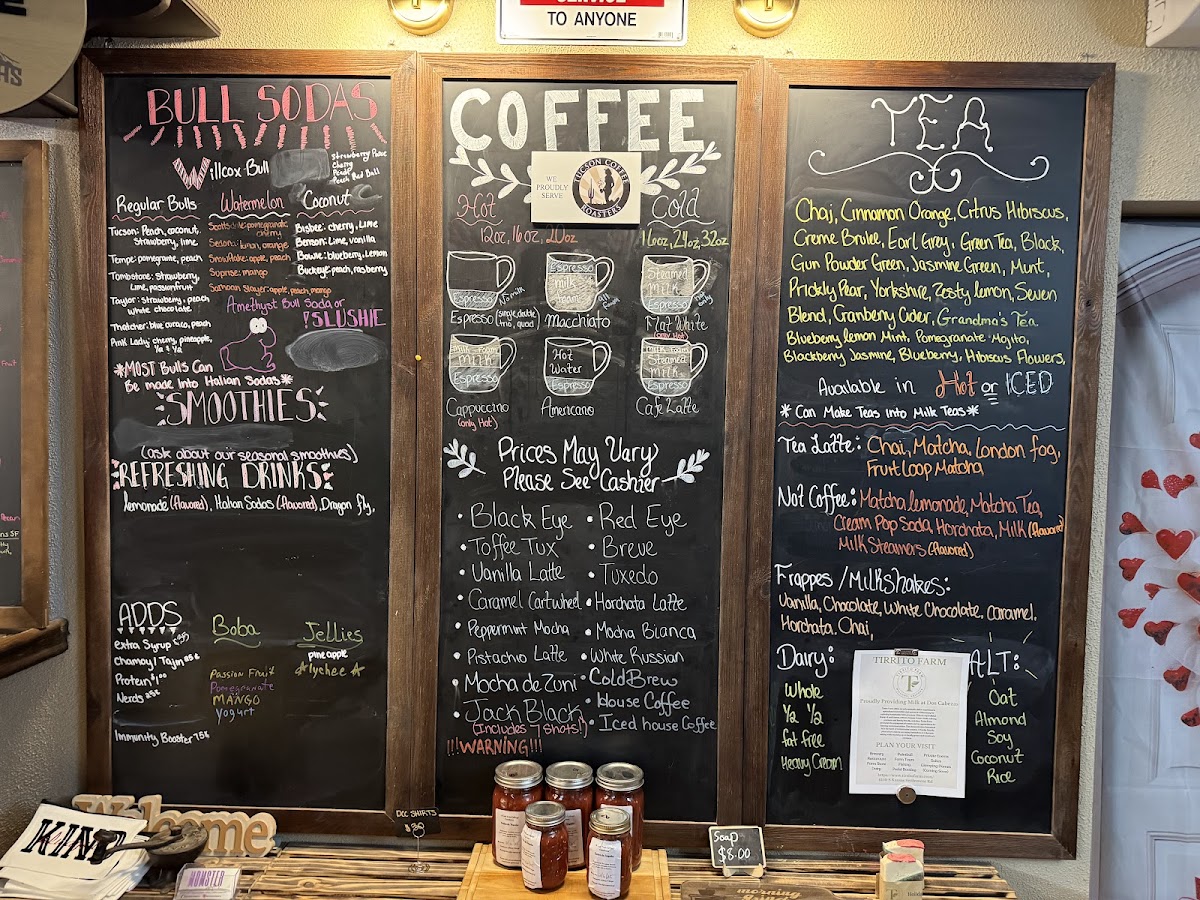 SERVICE
TO ANYONE
BULL SODAS
Willcox Bull
Cherry
Peach Red Bull
Regular Bulls
Tucson: Peach, coconut,
Strawberry, lime
Tempe: pomegrante, peach
Tombstone: strawberry,
Lime, passionfruit
Taylor: strawberry, peach
White chocolate
Thatcher: blue curaco, peach
Pink Lady: cherry, pineapple,
½ & ½
*MOST Bulls Can
Be made Into Italian Sodas*
Watermelon
Scottsdale: pomegranate
cherry
Sedona: lemon, orange
Snowflake: apple, peach
Suprise: mango
Samoan Slayer: apple, peach, mango
Coconut
Bisbee: cherry, Lime
Benson: Lime, vanilla
Bowie: blueberry, Lemon
Buckeye: peach, rasberry
Amethyst Bull Soda or
!SLUSHIE
SMOOTHIES
(ask about our seasonal smoothies)
REFRESHING DRINKS
lemonade (flavored), Italian Sodas (flavored), Dragon fly,
ADDS
Extra Syrup
Chamoy / Tajin
Protein
Nerds
Immunity Booster 75¢
Boba
Passion Fruit
Pomegranate
MANGO
Yogurt
Jellies
pineapple
lychee
COFFEE
WE
PROUDLY
SERVE
TUCSON COFFEE
ROASTERS
Hot
12oz, 16oz, 20oz
Cold
16oz, 24oz, 32oz
Espresso
No milk
Espresso (single, double
trio, quad)
Espresso
milk
Macchiato
Steamed
Milk
Espresso
Flat White
(only Hot)
Milk
Espresso
Cappuccino
(only Hot)
Hot
Water
Espresso
Americano
Steamed
Milk
Espresso
Cafe Latte
Prices May Vary
Please See Cashier
• Black Eye
• Toffee Tux
• Vanilla Latte
• Caramel Cartwheel
• Peppermint Mocha
• Pistachio Latte
• Mocha de Zuni
• Jack Black
(Includes 7 Shots!)
!!!WARNING!!!
• Red Eye
• Breve
• Tuxedo
• Horchata Latte
• Mocha Bianca
• White Russian
• Cold Brew
• House Coffee
• Iced house Coffee
TEA
Chai, Cinnamon Orange, Citrus Hibiscus,
Creme Brulee, Earl Grey, Green Tea, Black,
Gun Powder Green, Jasmine Green, Mint,
Prickly Pear, Yorkshire, Zesty lemon, Seven
Blend, Cranberry Cider, Grandma's Tea
Blueberry lemon Mint, Pomegranate Mojito,
Blackberry Jasmine, Blueberry, Hibiscus Flowers,
Available in Hot or ICED
* Can Make Teas into Milk Teas *
Tea Latte: Chai, Matcha, London fog,
Fruit Loop Matcha
Not Coffee: Matcha lemonade, Matcha Tea,
Cream Pop Soda, Horchata, Milk (flavored)
Milk Steamers (flavored)
Frappes / Milkshakes:
Vanilla, Chocolate, White Chocolate, Caramel,
Horchata. Chai,
Dairy:
Whole
½ ½
fat free
Heavy Cream
TIRRITO FARM
Proudly Providing Milk at Dos Cabezas
PLAN YOUR VISIT
ALT:
Oat
Almond
Soy
Coconut
Rice
Welcome
KIND
MOMSTER
DCC SHIRTS
$30
Soap
$8.00
morning